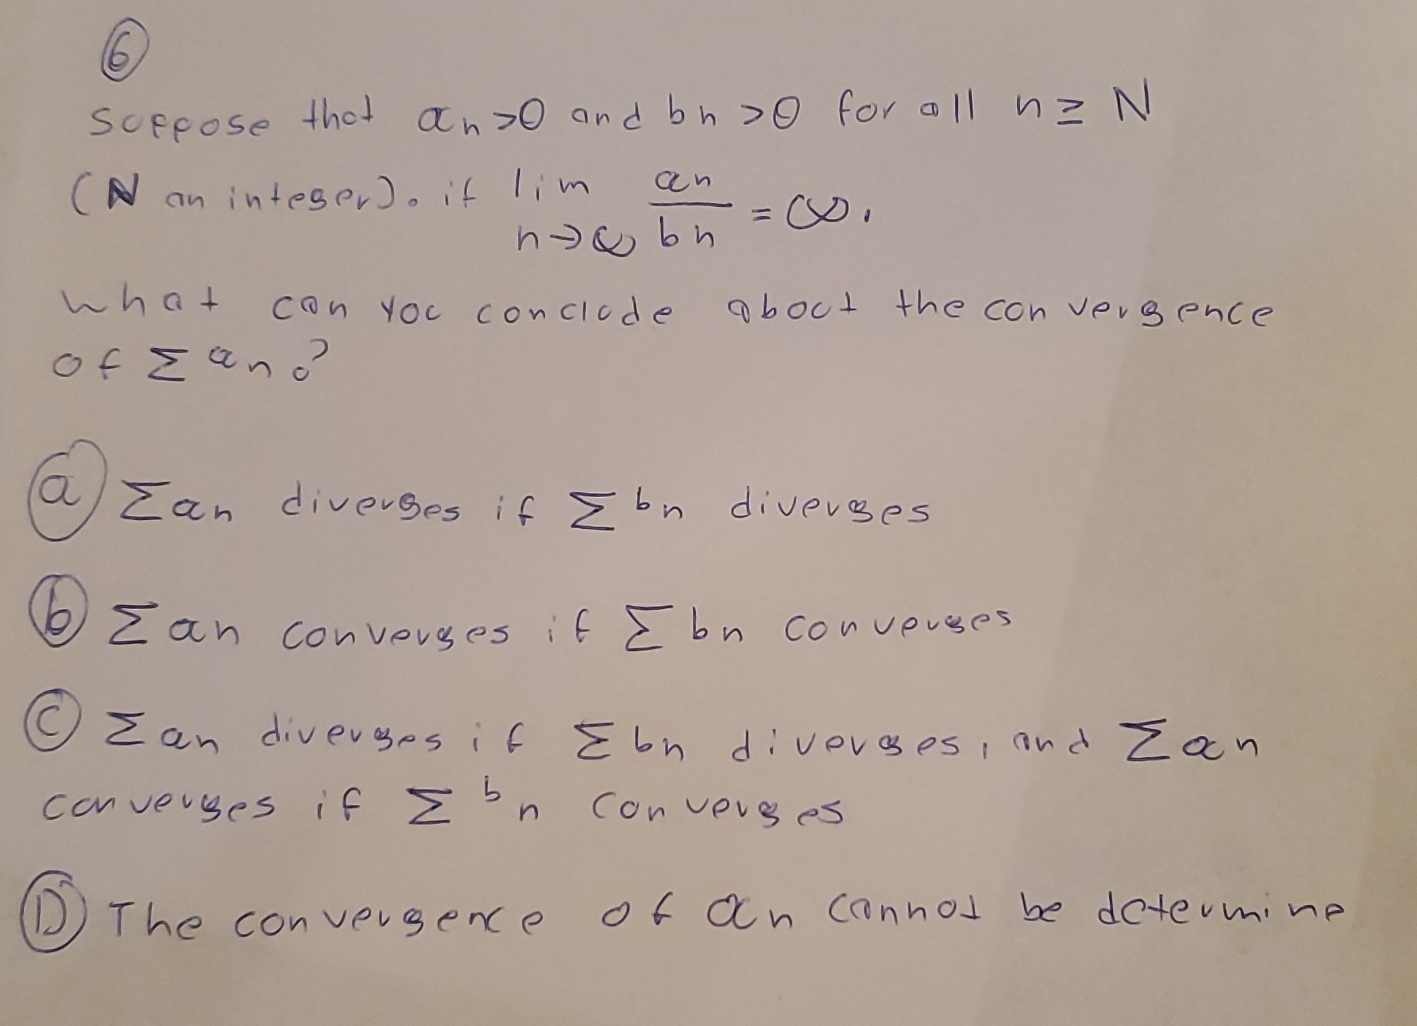 6
suppose that an>0 and bn>0 for all n≥N
(N an integer). if lim an/bn = ∞.
n→∞
what can you conclude about the convergence
of Σan?
a Σan diverges if Σbn diverges
b Σan converges if Σbn converges
C Σan diverges if Σbn diverges, and Σan
converges if Σbn converges
D The convergence of an cannot be determine